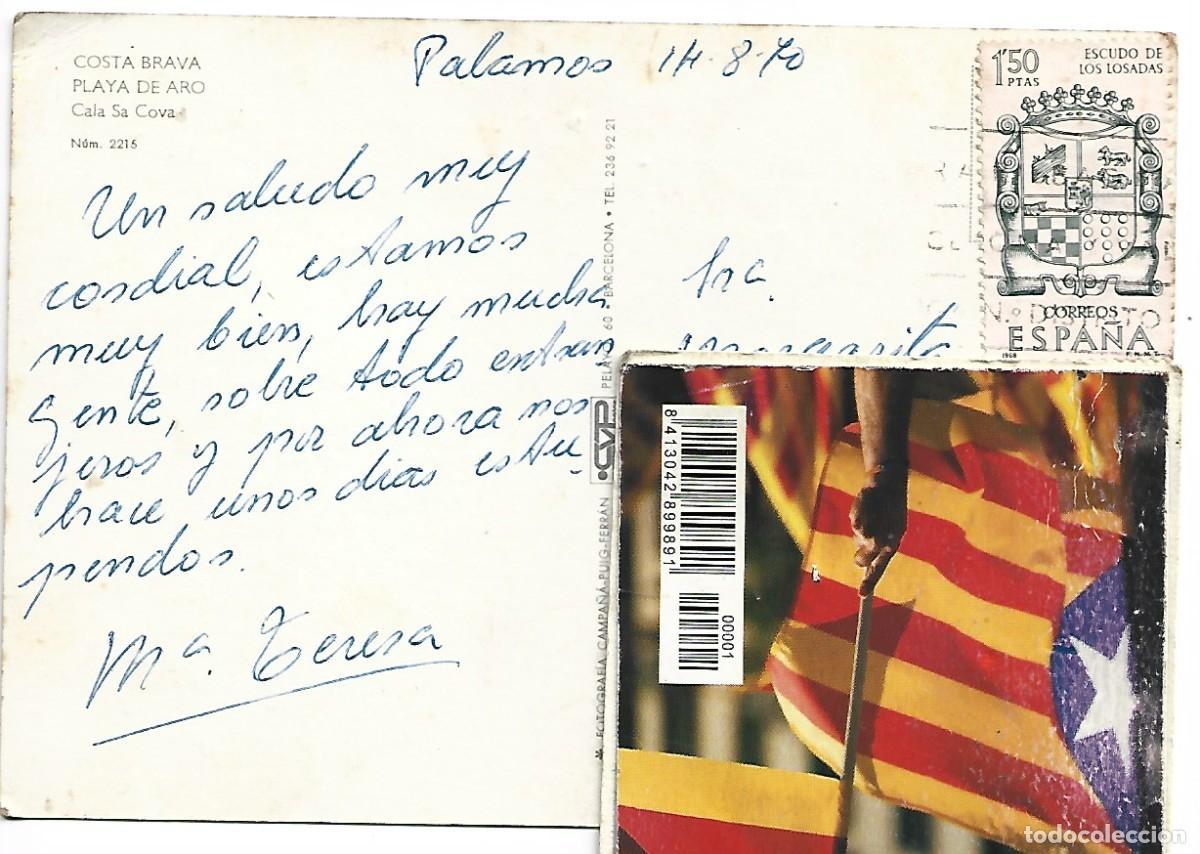 COSTA BRAVA
PLAYA DE ARO
Cala Sa Cova
Núm. 2215
Palamos 14-8-70
Un saludo muy
cordial, estamos
muy bien, hay mucha
gente, sobre todo extran
jeros y por ahora nos
hace unos dias estu-
pendos.
Mª. Teresa
* FOTOGRAFIA CAMPAÑÁ-PUIG-FERRAN
CYP
PELAYO 60 • BARCELONA • TEL. 236 92 21
1'50
PTAS
ESCUDO DE
LOS LOSADAS
CORREOS
ESPAÑA
1968
F.N.M.T.
N.º DISTRITO
Sra.
Margarita
8 413042 899891
00001
todocoleccion